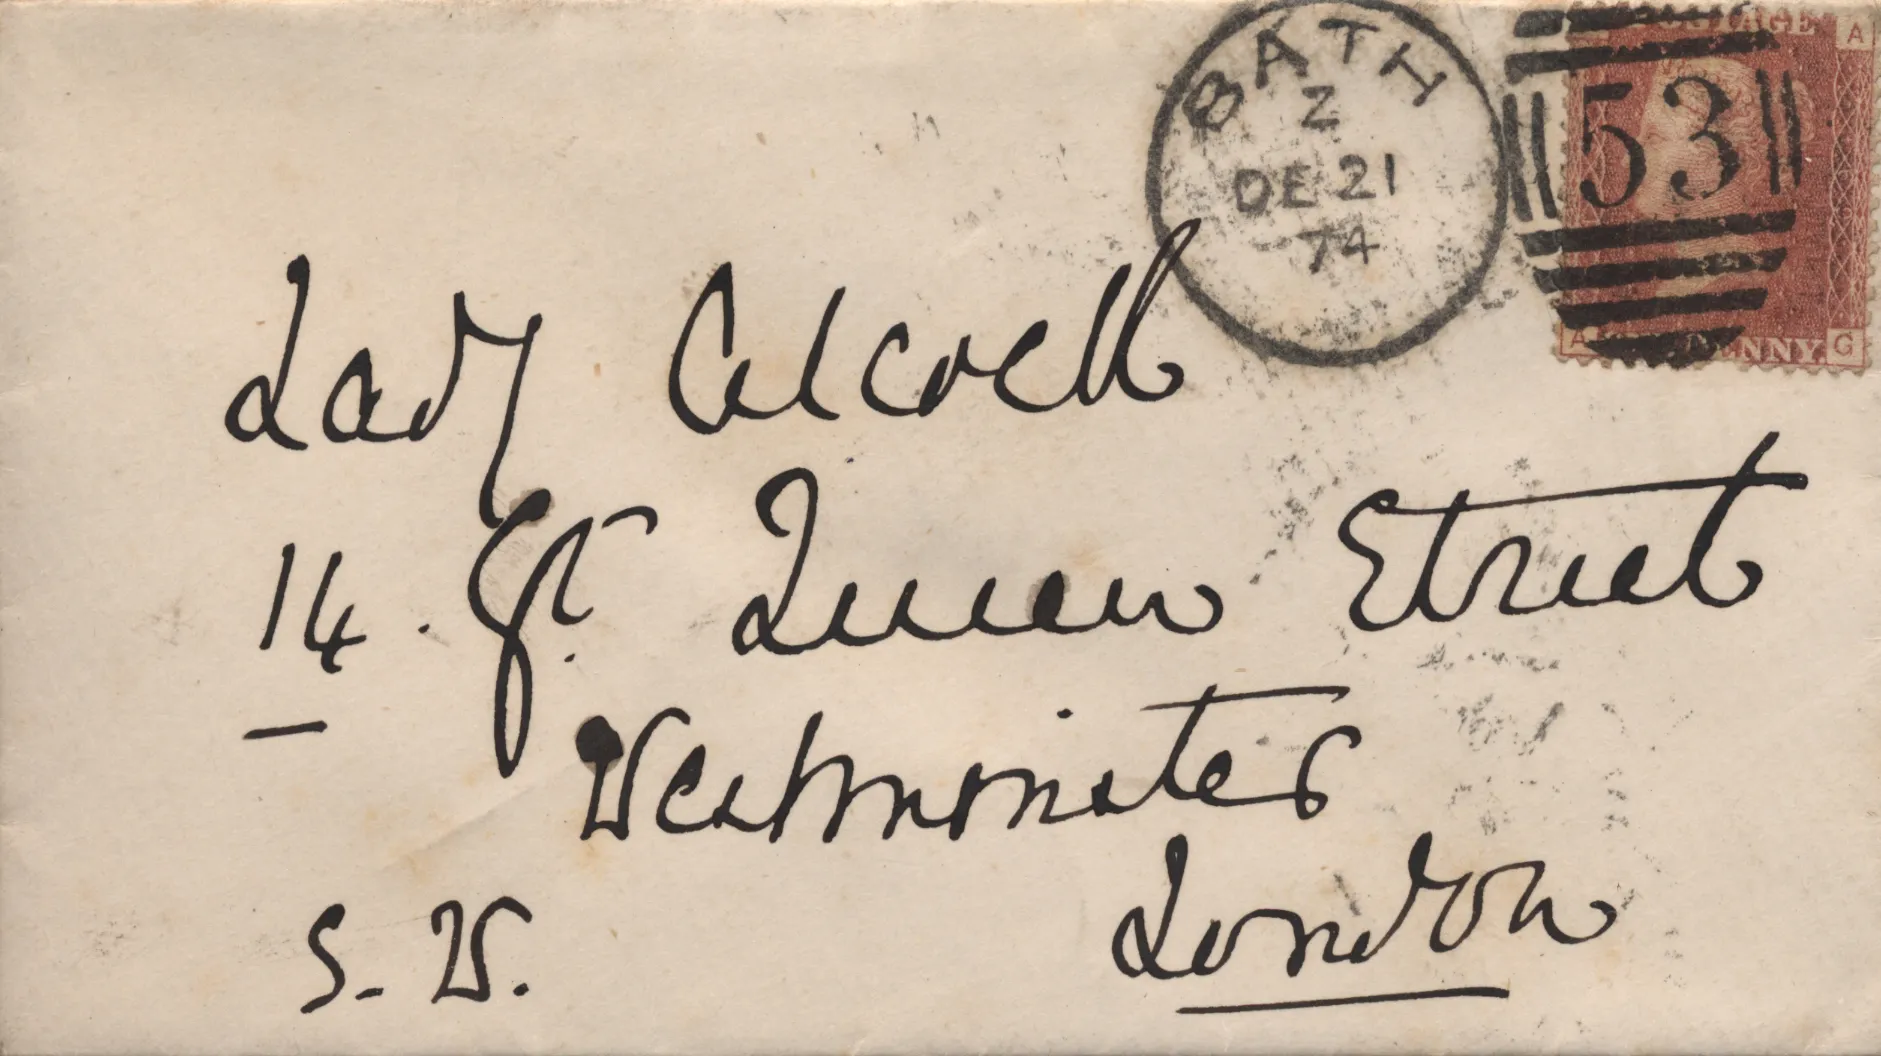 BATH
Z
DE 21
74
A
53
A
PENNY.
G
Lady Alcock
14. Gt. Queen Street
Westminster
London
S. W.